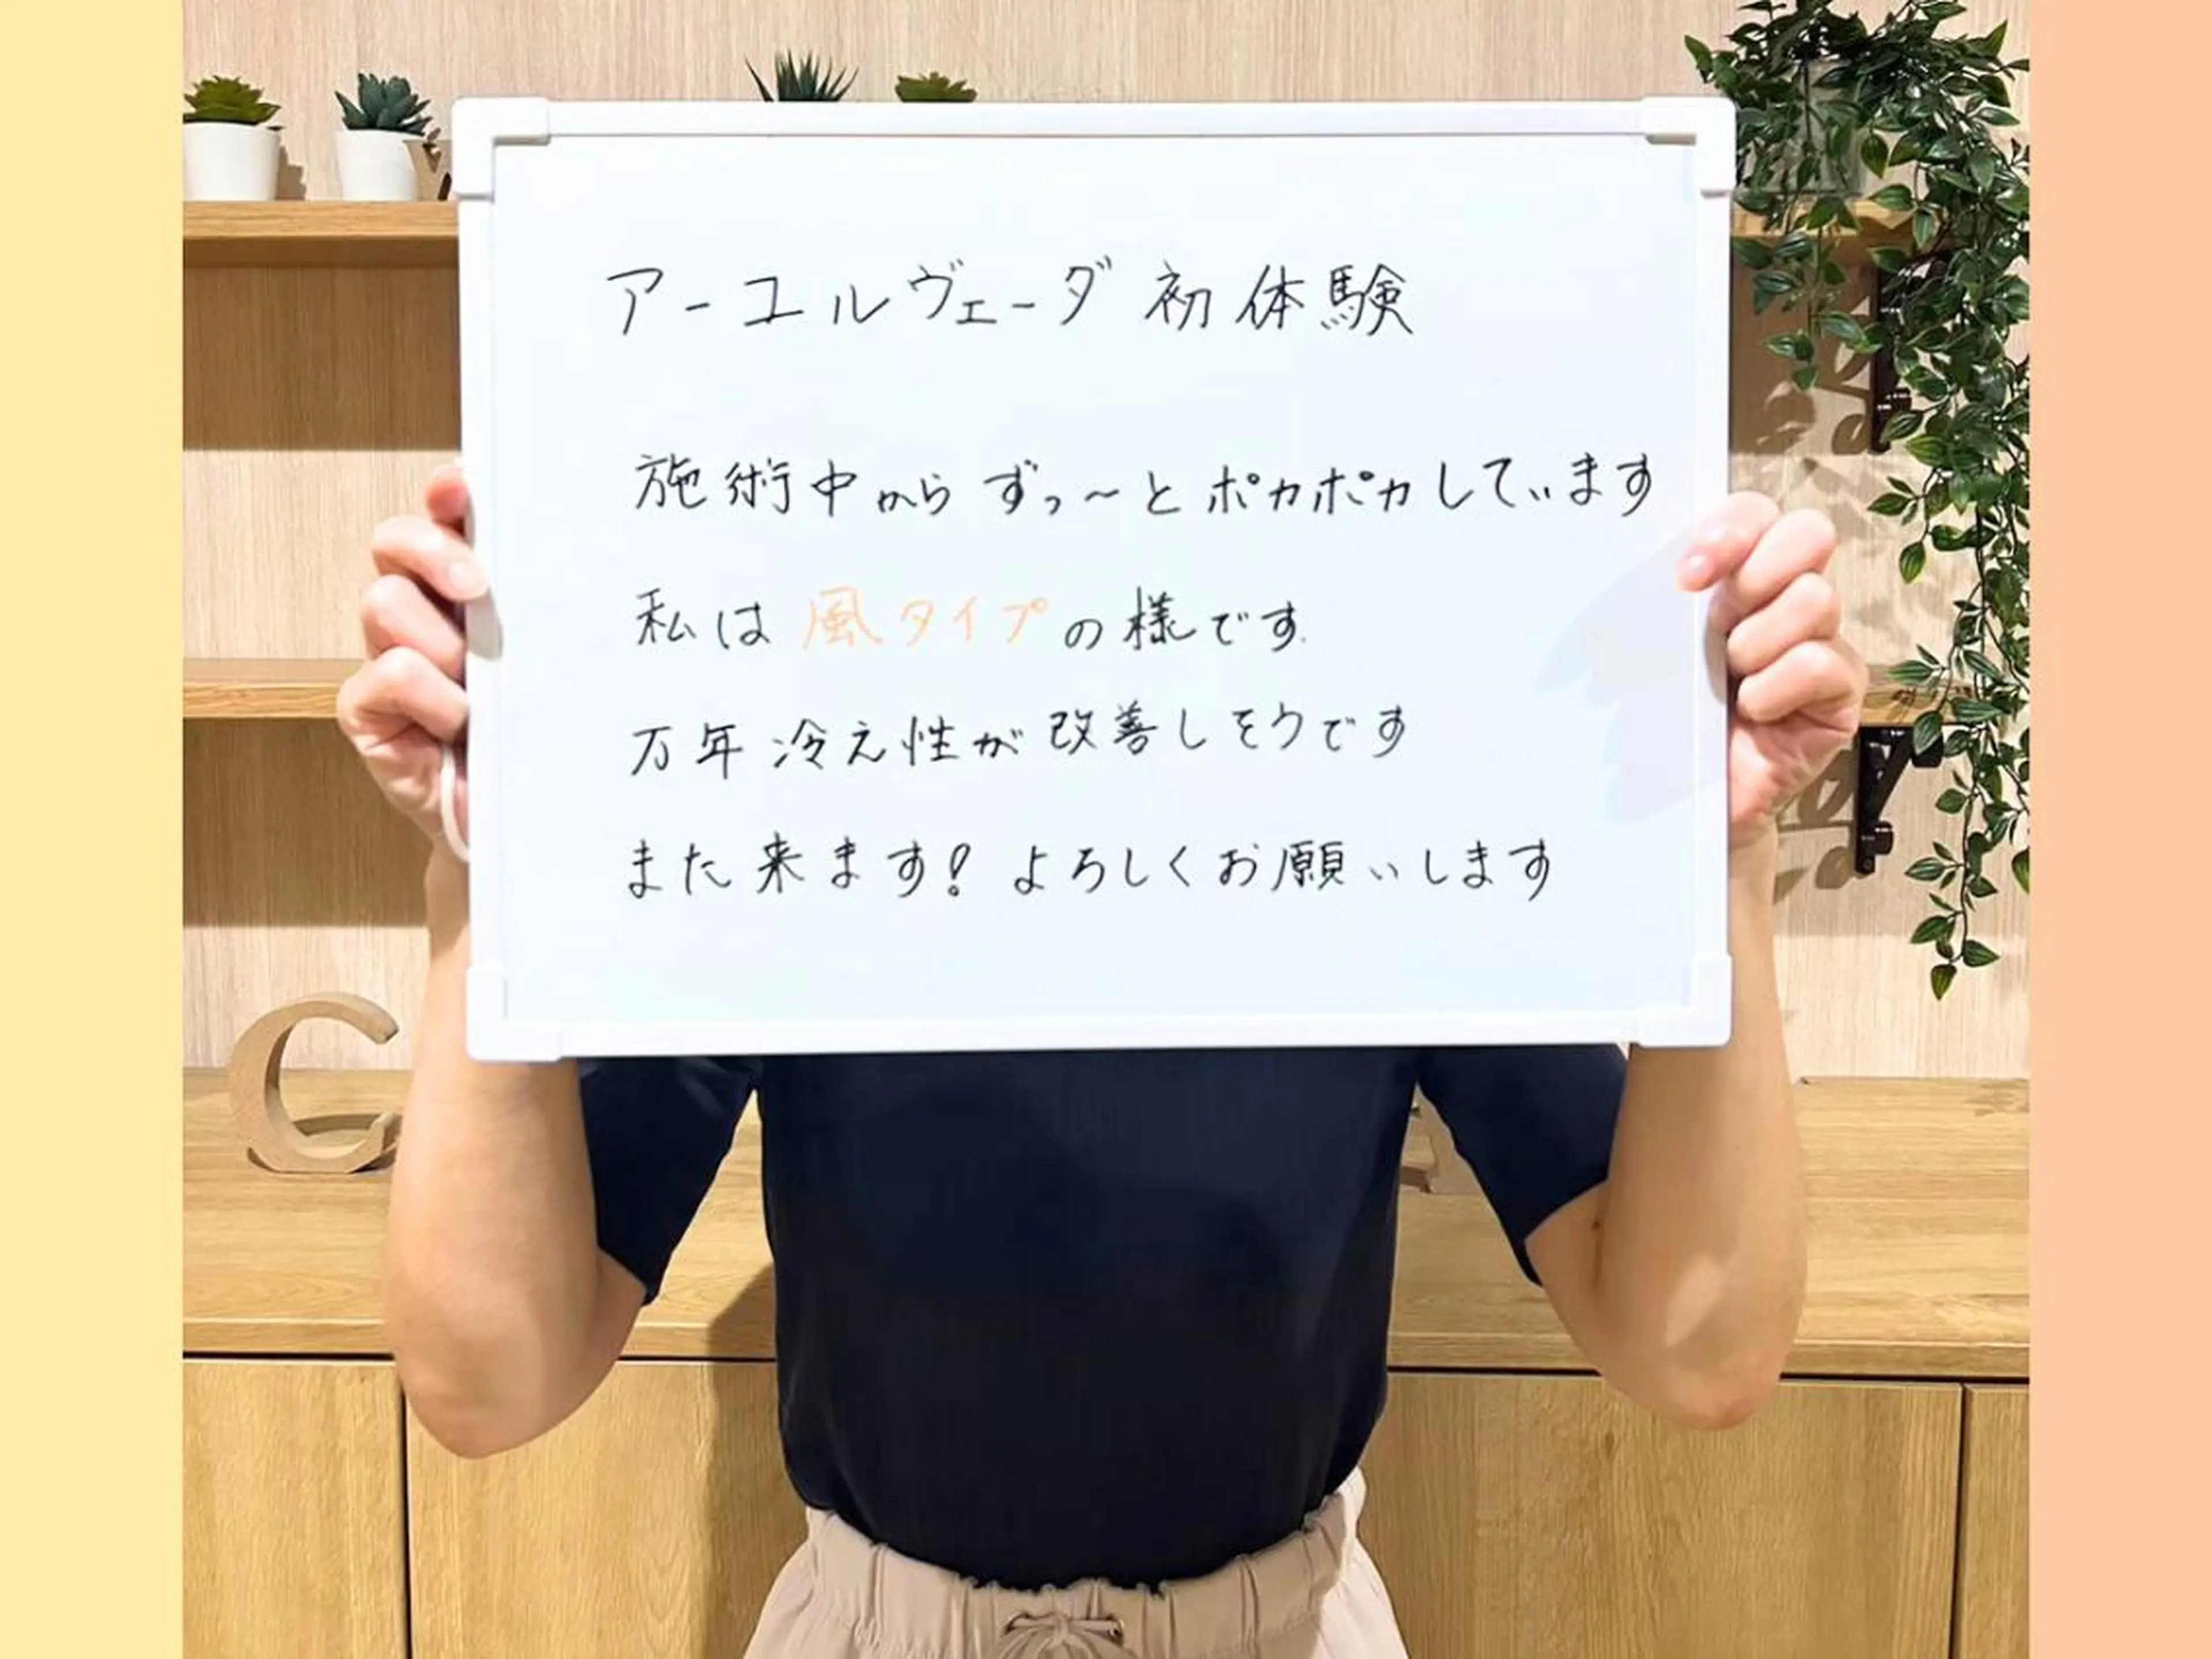 アーユルヴェーダ 初体験
施術中から ずっ〜とポカポカしています
私は 風タイプの様です.
万年冷え性が改善しそうです
また来ます! よろしくお願いします
C